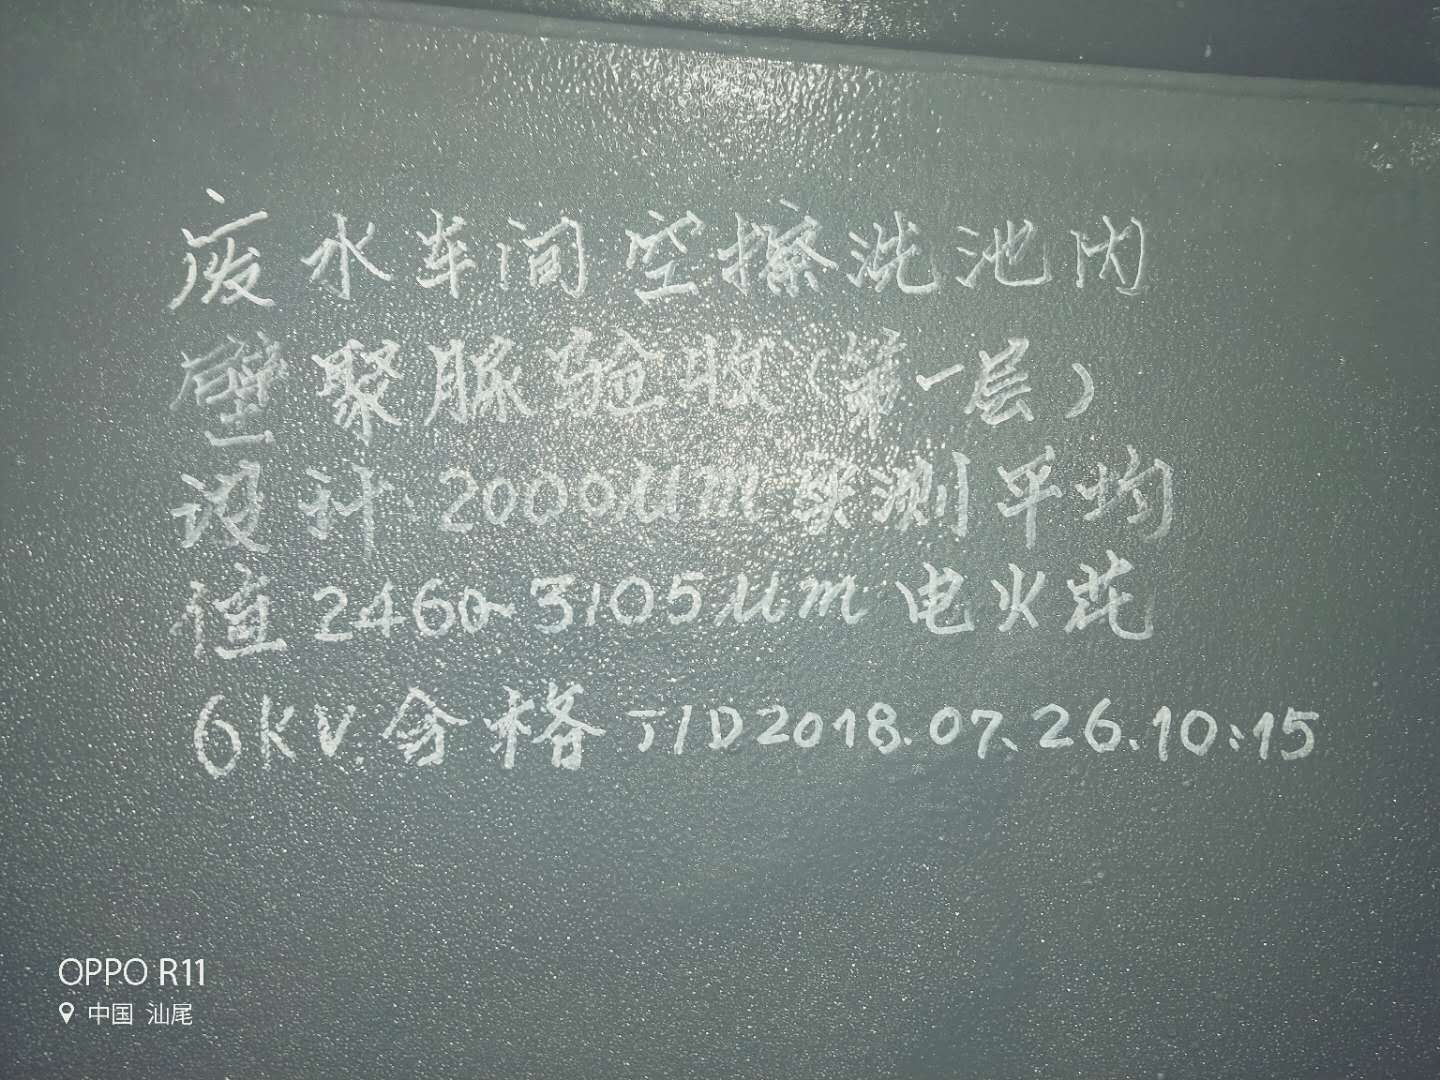 废水车间空擦洗池内
壁聚脲验收(第一层)
设计:2000μm实测平均
值2460-3105μm电火花
6kV.合格 TJD2018.07.26.10:15
OPPO R11
中国 汕尾